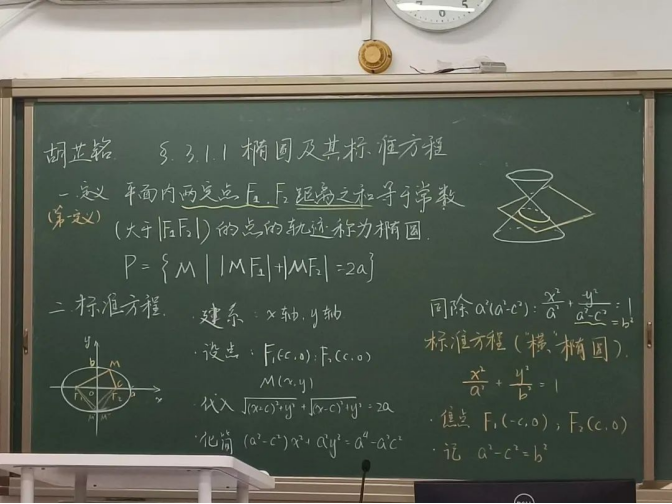 胡芷铭 §.3.1.1 椭圆及其标准方程
一.定义 平面内两定点F₁、F₂距离之和等于常数
(第一定义)
(大于|F₁F₂|)的点的轨迹称为椭圆.
P={M||MF₁|+|MF₂|=2a}
二.标准方程.
·建系:x轴,y轴
·设点:F₁(-c,0);F₂(c,0)
M(x,y)
·代入 √(x+c)²+y²+√(x-c)²+y²=2a
·化简 (a²-c²)x²+a²y²=a⁴-a²c²
y
b
M
F₁
0
F₂
x
同除a²(a²-c²):x²/a²+y²/a²-c²=1
=b²
标准方程("横"椭圆).
x²/a²+y²/b²=1
·焦点 F₁(-c,0);F₂(c,0)
·记 a²-c²=b²